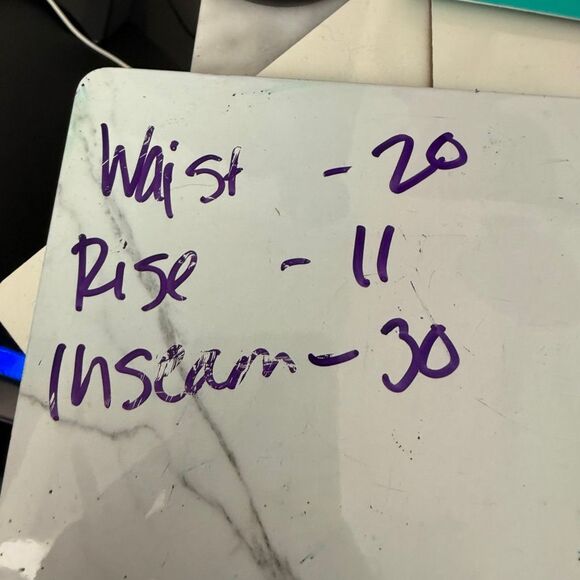 Waist - 20
Rise - 11
Inseam - 30